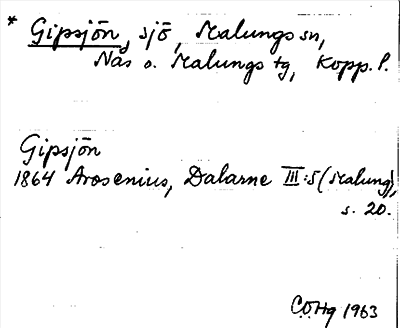 * Gipsjön, sjö, Malungs sn,
Nås o. Malungs tg, Kopp. l.
Gipsjön
1864 Arosenius, Dalarne III:5 (Malung),
s. 20.
C.O.Hg 1963